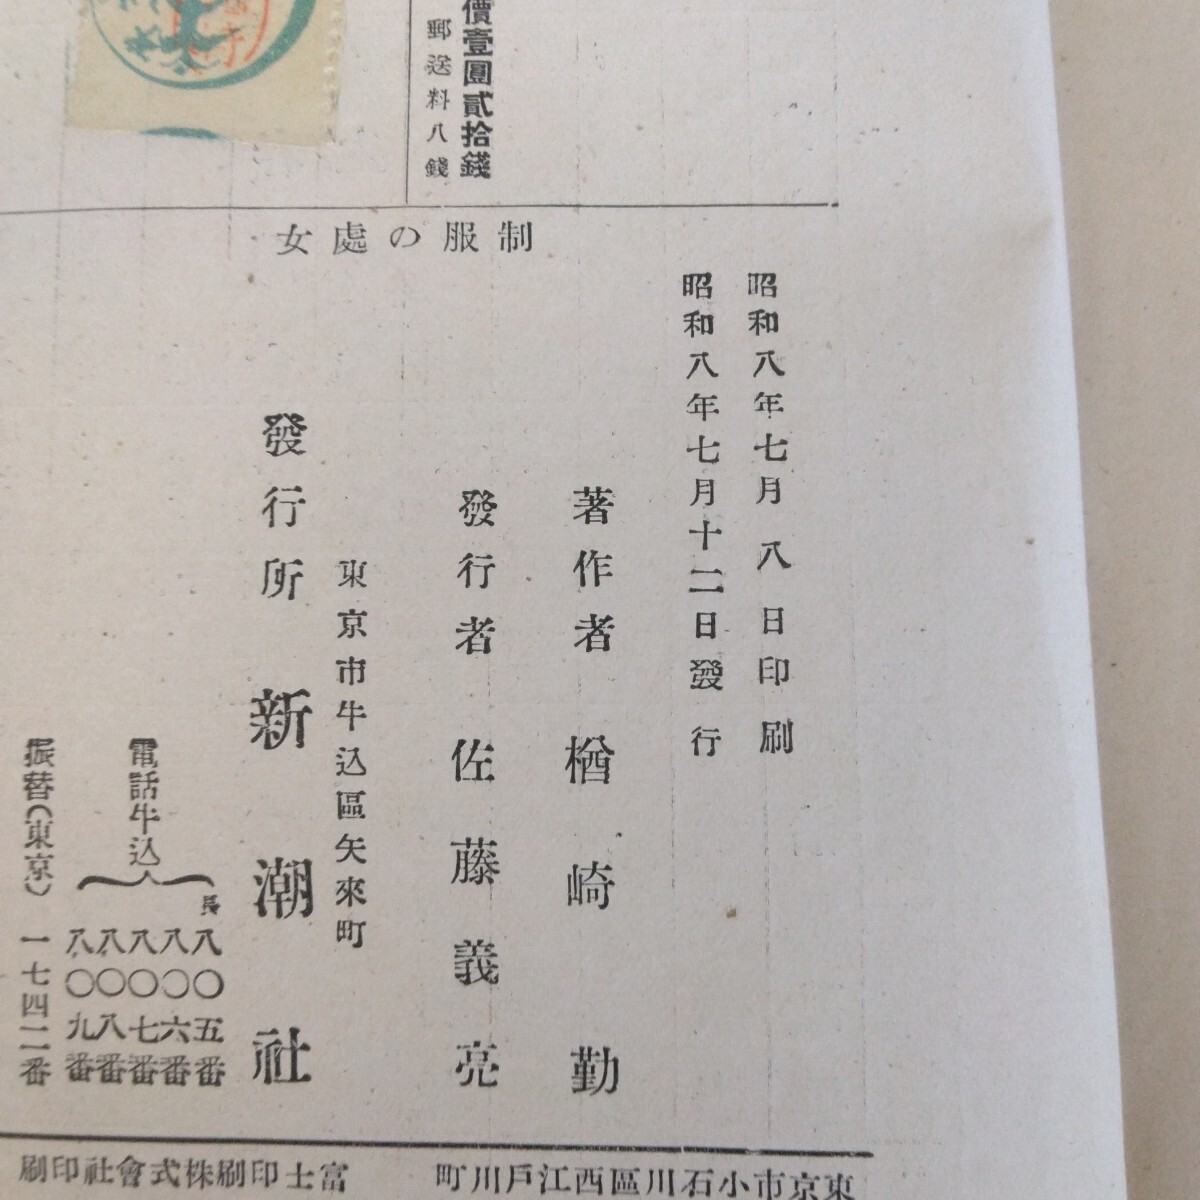 價壹圓貳拾錢
郵送料八錢
制服の處女
昭和八年七月八日印刷
昭和八年七月十二日發行
著作者 楢崎勤
發行者 佐藤義亮
東京市牛込區矢來町
發行所 新潮社
電話牛込
長八〇五番
八〇六番
八〇七番
八〇八番
八〇九番
振替(東京)一七四二番
東京市小石川區西江戶川町
富士印刷株式會社印刷